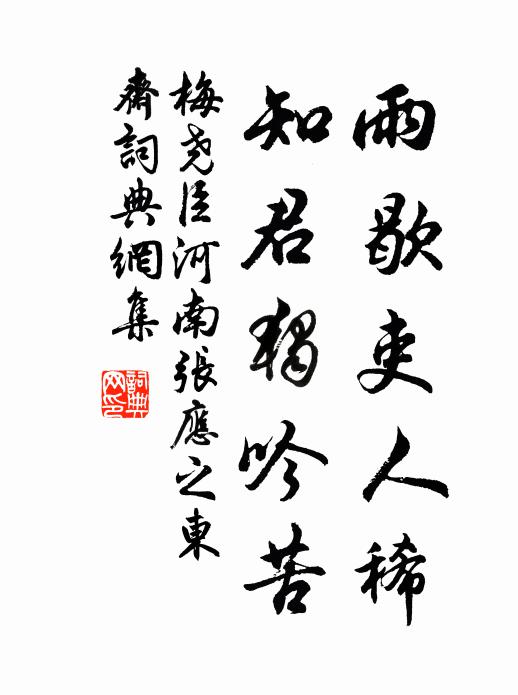 雨歇吏人稀
知君獨吟苦
梅堯臣河南張應之東
齋詞典網集
詞典
网印